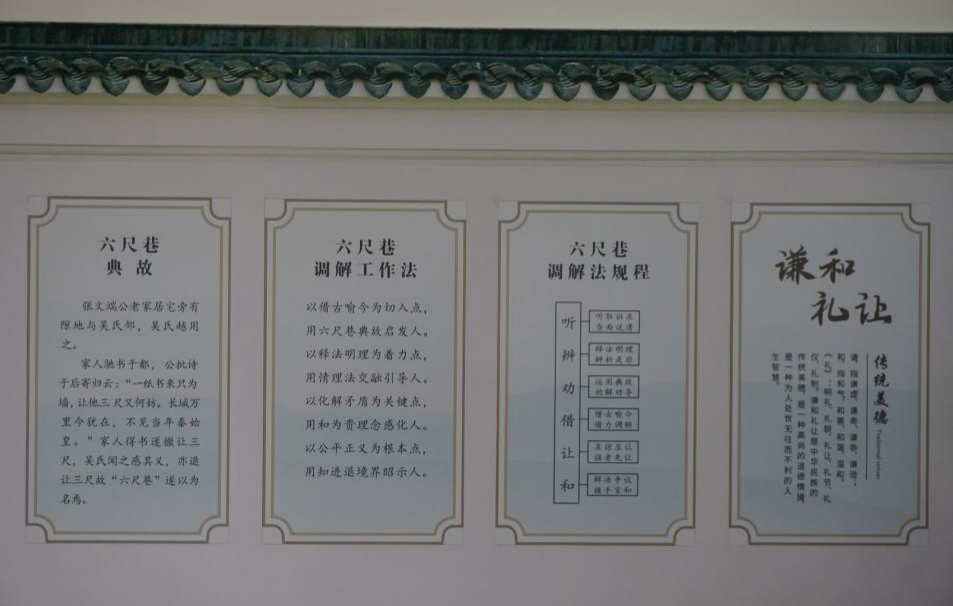 六尺巷
典故
张文端公老家居宅旁有
隙地与吴氏邻，吴氏越用
之。
家人驰书于都，公批诗
于后寄归云：“一纸书来只为
墙，让他三尺又何妨。长城万
里今犹在，不见当年秦始
皇。”家人得书遂撤让三
尺，吴氏闻之感其义，亦退
让三尺故“六尺巷”遂以为
名焉。
六尺巷
调解工作法
以借古喻今为切入点，
用六尺巷典故启发人。
以释法明理为着力点，
用情理法交融引导人。
以化解矛盾为关键点，
用和为贵理念感化人。
以公平正义为根本点，
用知进退境界昭示人。
六尺巷
调解法规程
听
听取诉求
当面说清
辨
释法明理
辨析是非
劝
运用典故
劝解劝导
借
借古喻今
借力调解
让
互谅互让
强者先让
和
解决争议
握手言和
谦和
礼让
传统美德
谦，指谦虚、谦卑、谦恭、谦逊；
和，指和气、和善、和蔼、温和。
《礼》：明礼、礼貌、礼让、礼节、礼
仪、礼制。谦和礼让是中华民族的
传统美德，是一种高尚的道德情操，
是一种为人处世无往而不利的人
生智慧。